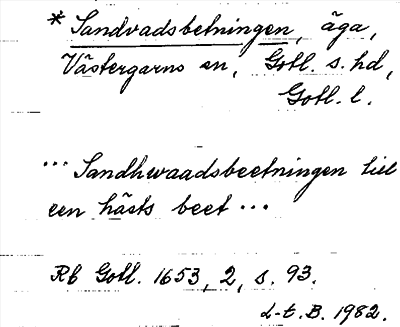 * Sandvadsbetningen, äga,
Västergarns sn, Gotl. s. hd,
Gotl. l.
... Sandhwaadsbeetningen till
een hästs beet ...
Rb Gotl. 1653, 2, s. 93.
L-t. B. 1982.